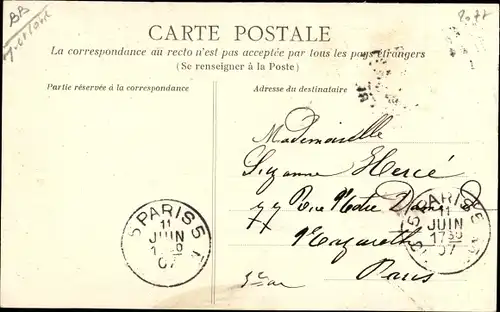 BB
CARTE POSTALE
La correspondance au recto n'est pas acceptée par tous les pays étrangers
(Se renseigner à la Poste)
Partie réservée à la correspondance
Adresse du destinataire
Mademoiselle
Suzanne Hercé
77 Rue Notre Dame de
77
Nazareth
Paris
PARIS 5
11
JUIN
07
PARIS
11
JUIN
17 30
07